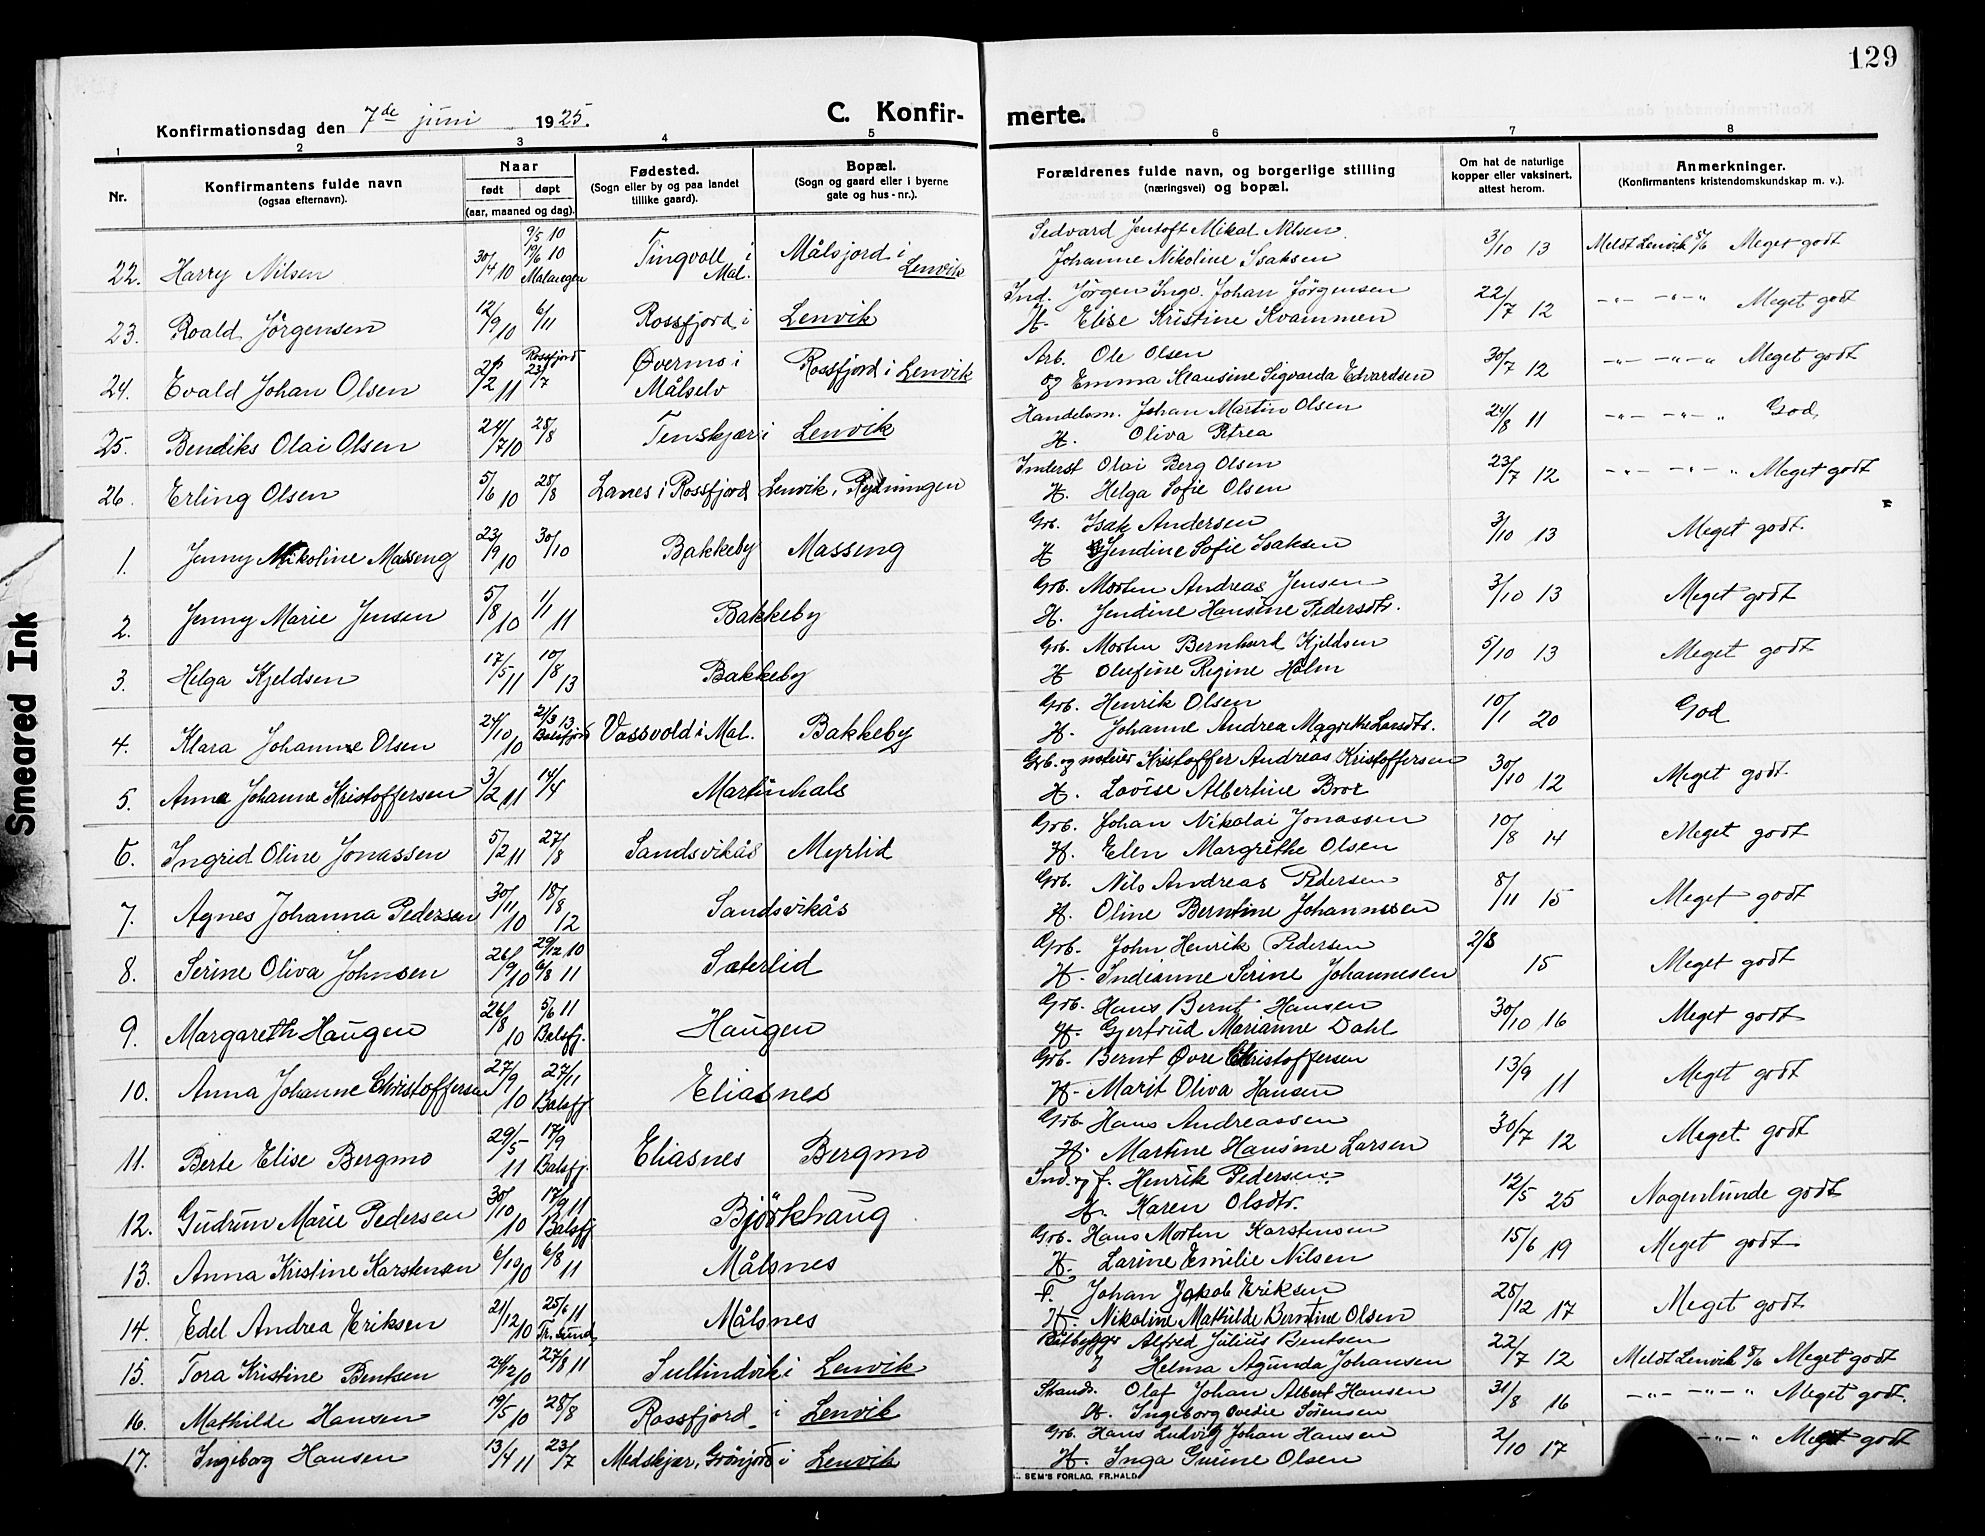 129
Konfirmationsdag den 7de juni 1925.
C. Konfir-
merte.
1 2 3 4 5 6 7 8
Nr.
Konfirmantens fulde navn
(ogsaa efternavn).
Naar
født døpt
(aar, maaned og dag).
Fødested.
(Sogn eller by og paa landet
tillike gaard).
Bopæl.
(Sogn og gaard eller i byerne
gate og hus-nr.).
Forældrenes fulde navn, og borgerlige stilling
(næringsvei) og bopæl.
Om hat de naturlige
kopper eller vaksinert.
attest herom.
Anmerkninger.
(Konfirmantens kristendomskundskap m. v.).
22. Harry Nilsen 30/4 10 9/5 10 19/6 10 Malangen Tingvoll i Mal. Målsjord i Lenvik
Sedvard Jentoft Mikal Nilsen
Johanne Nikoline Isaksen 3/10 13 Meldt Lenvik 8/6 Meget godt
23. Roald Jörgensen 12/9 10 6/11 Rossfjord i Lenvik
Ind. Jörgen Ingv. Johan Jörgensen
H. Elise Kristine Kvammen 22/7 12 -"- -"-" Meget godt
24. Evald Johan Olsen 2/2 11 Rossfjord 23/7 Øvermo i Målselv Rossfjord i Lenvik
Arb. Ole Olsen
og Emma Klausine Sigvarda Edvardsen 30/7 12 -"- -"-" Meget godt
25. Bendiks Olai Olsen 24/7 10 28/8 Tenskjær i Lenvik
Handelsm. Johan Martin Olsen
H. Oliva Petrea 24/8 11 -"- -"- " God,
26. Erling Olsen 5/6 10 28/8 Lanes i Rossfjord Lenvik, Rydningen
Inderst Olai Berg Olsen
H. Helga Sofie Olsen 23/7 12 -"- -"- " Meget godt
1. Jenny Nikoline Masseng 23/9 10 30/10 Bakkeby Masseng
Grb. Isak Andersen
H Gjendine Sofie Isaksen 3/10 13 Meget godt.
2. Jenny Marie Jensen 5/8 10 1/1 11 Bakkeby
Grb. Morten Andreas Jensen
H. Jendine Hansine Pedersdtr. 3/10 13 Meget godt
3. Helga Kjeldsen 17/5 11 10/8 13 Bakkeby
Grb. Morten Bernhard Kjeldsen
H Olufine Regine Holm 5/10 13 Meget godt
4. Klara Johanne Olsen 24/10 10 21/3 13 Balsfjord Vassvold i Mal. Bakkeby
Grb. Henrik Olsen
H. Johanne Andrea Magrethe Larsdtr. 10/1 20 God
5. Anna Johanne Kristoffersen 3/2 11 14/4 Martinhals
Grb. og Kristoffer Andreas Kristoffersen
H. Lovise Albertine Brox 30/10 12 Meget godt.
6. Ingrid Oline Jonassen 5/2 11 27/8 Sandsvikås Myrlid
Grb. Johan Nikolai Jonassen
H. Elen Margrethe Olsen 10/8 14 Meget godt
7. Agnes Johanna Pedersen 30/11 10 18/8 12 Sandsvikås
Grb. Nils Andreas Pedersen
H. Oline Berntine Johannessen 8/11 15 Meget godt
8. Serine Oliva Johnsen 26/9 10 29/12 10 6/8 11 Sæterlid
Grb. John Henrik Pedersen
H. Indianne Serine Johannesen 2/8 15 Meget godt
9. Margareth Haugen 26/8 10 5/6 11 Balsfj. Haugen
Grb. Hans Bernt Hansen
H. Gjertrud Marianne Dahl 30/10 16 Meget godt
10. Anna Johanne Christoffersen 27/9 10 27/11 Balsfj Eliasnes
Grb. Bernt Øvre Christoffersen
H. Marit Oliva Hansen 13/9 11 Meget godt
11. Berte Elise Bergmo 29/5 11 17/9 Balsfj. Eliasnes Bergmo
Grb. Hans Andreassen
H. Martine Hansine Larsen 30/7 12 Meget godt
12. Gudrun Marie Pedersen 30/10 10 17/9 11 Balsfj Björkhaug
Ind. og f. Henrik Pedersen
H. Karen Olsdtr. 12/5 25 Nogenlunde godt
13. Anna Kristine Karstensen 6/10 10 6/8 11 Målsnes
Grb. Hans Morten Karstensen
H. Larine Emilie Nilsen 15/6 19 Meget godt
14. Edel Andrea Eriksen 21/12 10 25/6 11 Tr.sund Målsnes
F. Johan Jakob Eriksen
H. Nikoline Mathilde Berntine Olsen 28/12 17 Meget godt
15. Tora Kristine Bentsen 24/12 10 27/8 11 Sultindvik i Lenvik
Båtbygger Alfred Julius Bentsen
Helma Agunda Johansen 22/7 12 Meldt Lenvik 8/6 Meget godt
16. Mathilde Hansen 19/5 10 28/8 Rossfjord i Lenvik
Strands. Olaf Johan Albert Hansen
H. Ingeborg Ovedie Sørensen 31/8 16 -"- -"- " Meget godt
17. Ingeborg Hansen 13/4 11 23/7 Medskjær, Grönjord i Lenvik
Grb. Hans Ludvig Johan Hansen
H. Inga Gurine Olsen 2/10 17 -"- " Meget godt
SEM'S FORLAG, FR.HALD
Smeared Ink